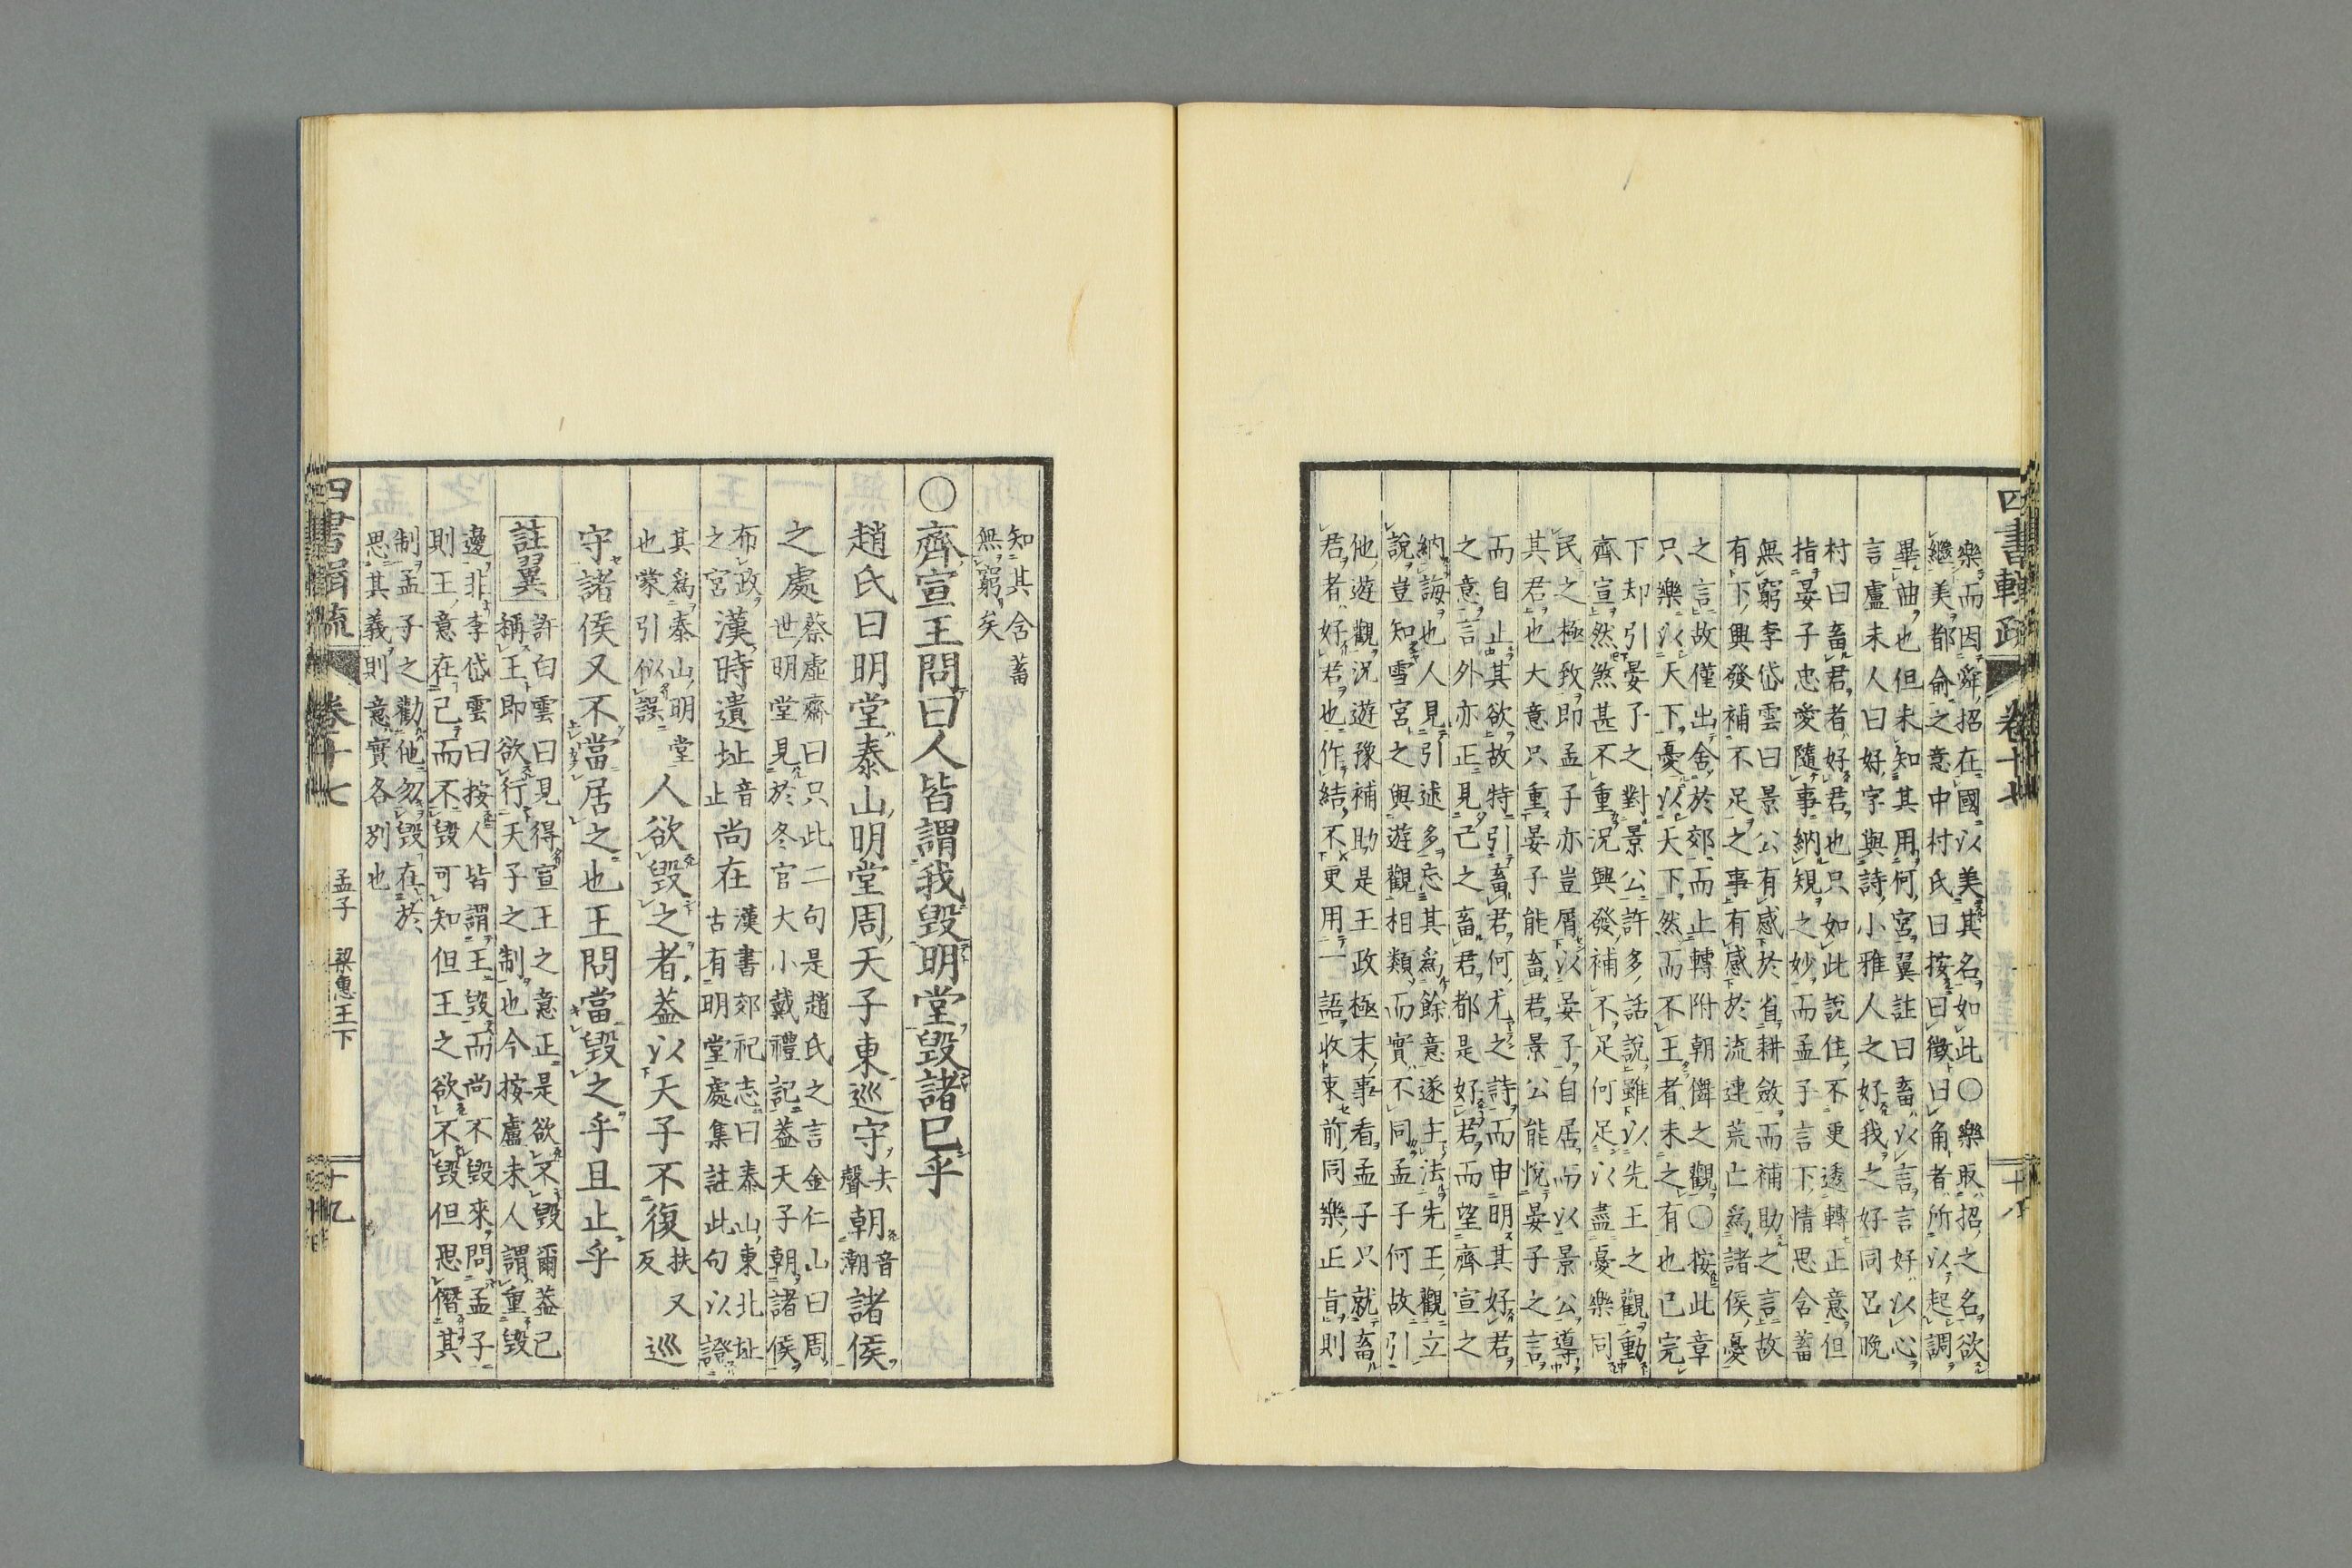 四書輯疏 卷十七 十八
樂而因舜招在國以美其名如此○樂取招之名欲
繼美都俞之意中村氏曰按曰徵曰角者所以起調
畢曲也但未知其用何宮翼註曰畜以言言好以心
言盧未人曰好字與詩小雅人之好我之好同呂晚
村曰畜君者好君也只如此說住不更透轉正意但
指晏子忠愛隨事納規之妙而孟子言下情思含蓄
無窮李岱雲曰景公有感於省耕斂而補助之言故
有下興發補不足之事有感於流連荒亡爲諸侯憂
之言故僅出舍於郊而止轉附朝儛之觀○按此章
只樂以天下憂以天下然而不王者未之有也已完
下却引晏子之對景公許多話說雖以先王之觀動
齊宣然煞甚不重況興發補不足何足以盡憂樂同
民之極致即孟子亦豈屑以晏子自居而以景公導
其君也大意只重晏子能畜君景公能悅晏子之言
而自止其欲故特引畜君何尤之詩而申明其好君
之意言外亦正見己之畜君都是好君而望齊宣之
納誨也人見引述多忘其爲餘意遂主法先王觀立
說豈知雪宮之與遊觀相類而實不同孟子何故引
他遊觀況遊豫補助是王政極末事看孟子只就畜
君者好君也作結不更用一語收束前同樂正旨則
知其含蓄
無窮矣
○齊宣王問曰人皆謂我毀明堂毀諸已乎
趙氏曰明堂泰山明堂周天子東巡守去聲朝音潮諸侯
之處蔡虛齋曰只此二句是趙氏之言金仁山曰周
世明堂見於冬官大小戴禮記蓋天子朝諸侯
布政
之宮漢時遺址音止尚在漢書郊祀志曰泰山東北址
古有明堂處集註此句以證
其爲泰山明堂
也蒙引似誤人欲毀之者蓋以天子不復扶又反巡
守諸侯又不當居之也王問當毀之乎且止乎
註翼許白雲曰見得宣王之意正是欲不毀爾蓋已
稱王即欲行天子之制也今按盧未人謂重毀
邊非李岱雲曰按人皆謂王毀而尚不毀來問孟子
則王意在己而不毀可知但王之欲不毀但思僭其
制孟子之勸他勿毀在於
思其義則意實各別也
四書輯疏 卷十七 孟子 梁惠王下 十九